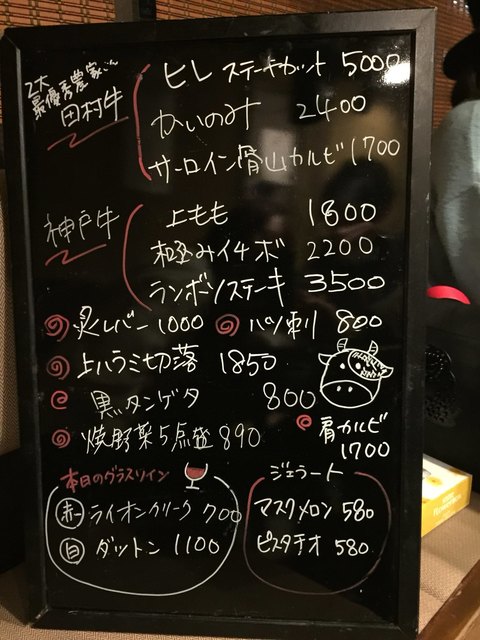 2大
最優秀農家さん
田村牛
ヒレステーキカット 5000
かいのみ 2400
サーロイン骨山カルビ 1700
神戸牛
上もも 1800
極みイチボ 2200
ランボソステーキ 3500
炙レバー 1000
ハツ刺 800
上ハラミ切落 1850
黒タンゲタ 800
肩カルビ
1700
焼野菜5点盛 890
本日のグラスワイン
赤 ライオンクリーク 700
白 ダットン 1100
ジェラート
マスクメロン 580
ピスタチオ 580